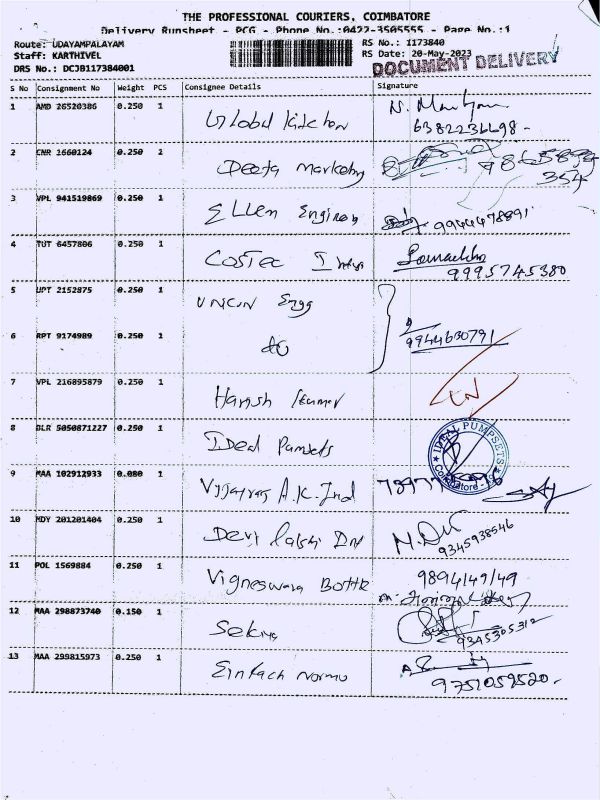 THE PROFESSIONAL COURIERS, COIMBATORE
Delivery Runsheet - PCG - Phone No.:0422-3505555 - Page No.:1
Route: UDAYAMPALAYAM
Staff: KARTHIVEL
DRS No.: DCJB117384001
RS No.: 1173840
RS Date: 20-May-2023
DOCUMENT DELIVERY
S No Consignment No Weight PCS Consignee Details Signature
1 AMD 26520386 0.250 1 Global Kitchen
2 CNR 1660124 0.250 1 Deeta Marketing
3 VPL 941519869 0.250 1 Ellen 9944478891
4 TUT 6457806 0.250 1 Costec 9995745380
5 UPT 2152875 0.250 1 Engg
6 RPT 9174989 0.250 1 do 9944630791
7 VPL 216895879 0.250 1 Harish Kumar
8 BLR 5050871227 0.250 1 Ideal Pumpsets IDEAL PUMPSETS Coimbatore
9 MAA 102912933 0.080 1 A.K. Ind
10 MDY 201201404 0.250 1 Devi 9345938546
11 POL 1569884 0.250 1 Vigneswara Bottle 9894149149
12 MAA 298873740 0.150 1 9345305312
13 MAA 299815973 0.250 1 Einfach 9751059520